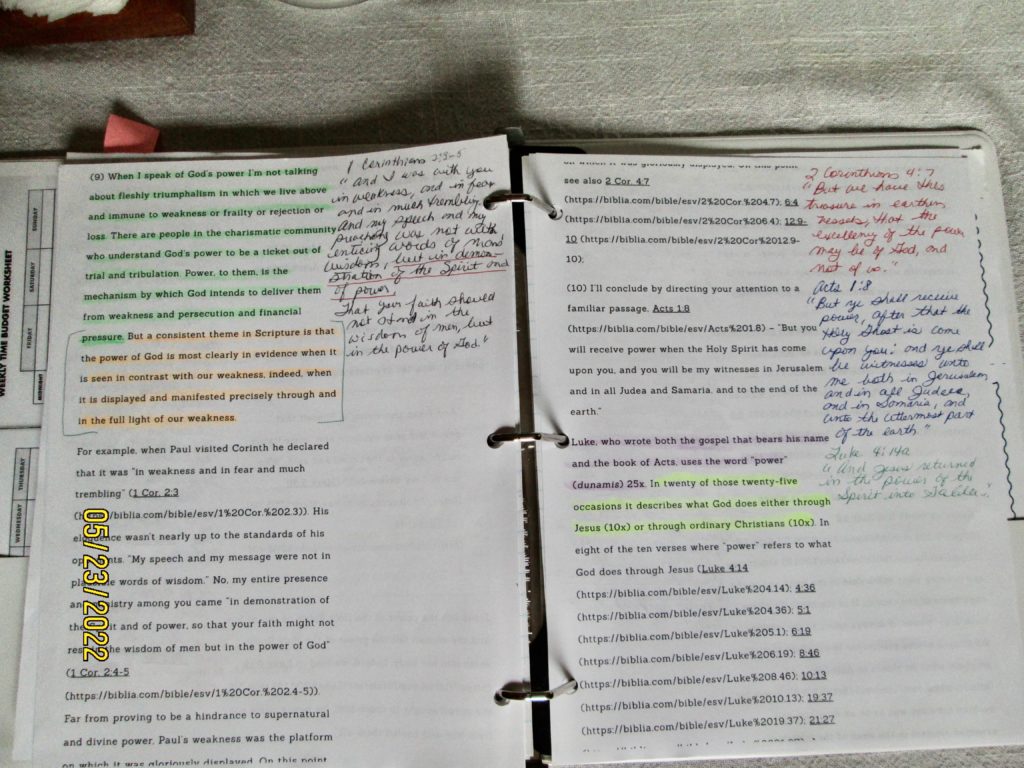 (9) When I speak of God's power I'm not talking
about fleshly triumphalism in which we live above
and immune to weakness or frailty or rejection or
loss. There are people in the charismatic community
who understand God's power to be a ticket out of
trial and tribulation. Power, to them, is the
mechanism by which God intends to deliver them
from weakness and persecution and financial
pressure. But a consistent theme in Scripture is that
the power of God is most clearly in evidence when it
is seen in contrast with our weakness, indeed, when
it is displayed and manifested precisely through and
in the full light of our weakness.
For example, when Paul visited Corinth he declared
that it was "in weakness and in fear and much
trembling" (1 Cor. 2:3
(https://biblia.com/bible/esv/1%20Cor.%202.3)). His
wasn't nearly up to the standards of his
"My speech and my message were not in
words of wisdom." No, my entire presence
among you came "in demonstration of
and of power, so that your faith might not
wisdom of men but in the power of God"
(1 Cor. 2:4-5
(https://biblia.com/bible/esv/1%20Cor.%202.4-5)).
Far from proving to be a hindrance to supernatural
and divine power, Paul's weakness was the platform
on which it was gloriously displayed. On this point
1 Corinthians 2:3-5
"And I was with you
in weakness, and in fear
and in much trembling
And my speech and my
preaching was not with
enticing words of man's
wisdom, but in demon-
stration of the Spirit and
of power.
That your faith should
not stand in the
wisdom of men, but
in the power of God."
on which it was gloriously displayed. On this point
see also 2 Cor. 4:7
(https://biblia.com/bible/esv/2%20Cor%204.7); 6:4
(https://biblia.com/bible/esv/2%20Cor%206.4); 12:9-
10 (https://biblia.com/bible/esv/2%20Cor%2012.9-
10);
(10) I'll conclude by directing your attention to a
familiar passage. Acts 1:8
(https://biblia.com/bible/esv/Acts%201.8) – "But you
will receive power when the Holy Spirit has come
upon you, and you will be my witnesses in Jerusalem
and in all Judea and Samaria, and to the end of the
earth."
Luke, who wrote both the gospel that bears his name
and the book of Acts, uses the word "power"
(dunamis) 25x. In twenty of those twenty-five
occasions it describes what God does either through
Jesus (10x) or through ordinary Christians (10x). In
eight of the ten verses where "power" refers to what
God does through Jesus (Luke 4:14
(https://biblia.com/bible/esv/Luke%204.14); 4:36
(https://biblia.com/bible/esv/Luke%204.36); 5:1
(https://biblia.com/bible/esv/Luke%205.1); 6:19
(https://biblia.com/bible/esv/Luke%206.19); 8:46
(https://biblia.com/bible/esv/Luke%208.46); 10:13
(https://biblia.com/bible/esv/Luke%2010.13); 19:37
(https://biblia.com/bible/esv/Luke%2019.37); 21:27
2 Corinthians 4:7
"But we have this
treasure in earthen
vessels, that the
excellency of the power
may be of God, and
not of us."
Acts 1:8
"But ye shall receive
power, after that the
Holy Ghost is come
upon you: and ye shall
be witnesses unto
me both in Jerusalem,
and in all Judaea,
and in Samaria, and
unto the uttermost part
of the earth."
Luke 4:14a
"And Jesus returned
in the power of the
Spirit into Galilee."
WEEKLY TIME BUDGET WORKSHEET
SUNDAY
SATURDAY
FRIDAY
MIDNIGHT
THURSDAY
WEDNESDAY
05/23/2022